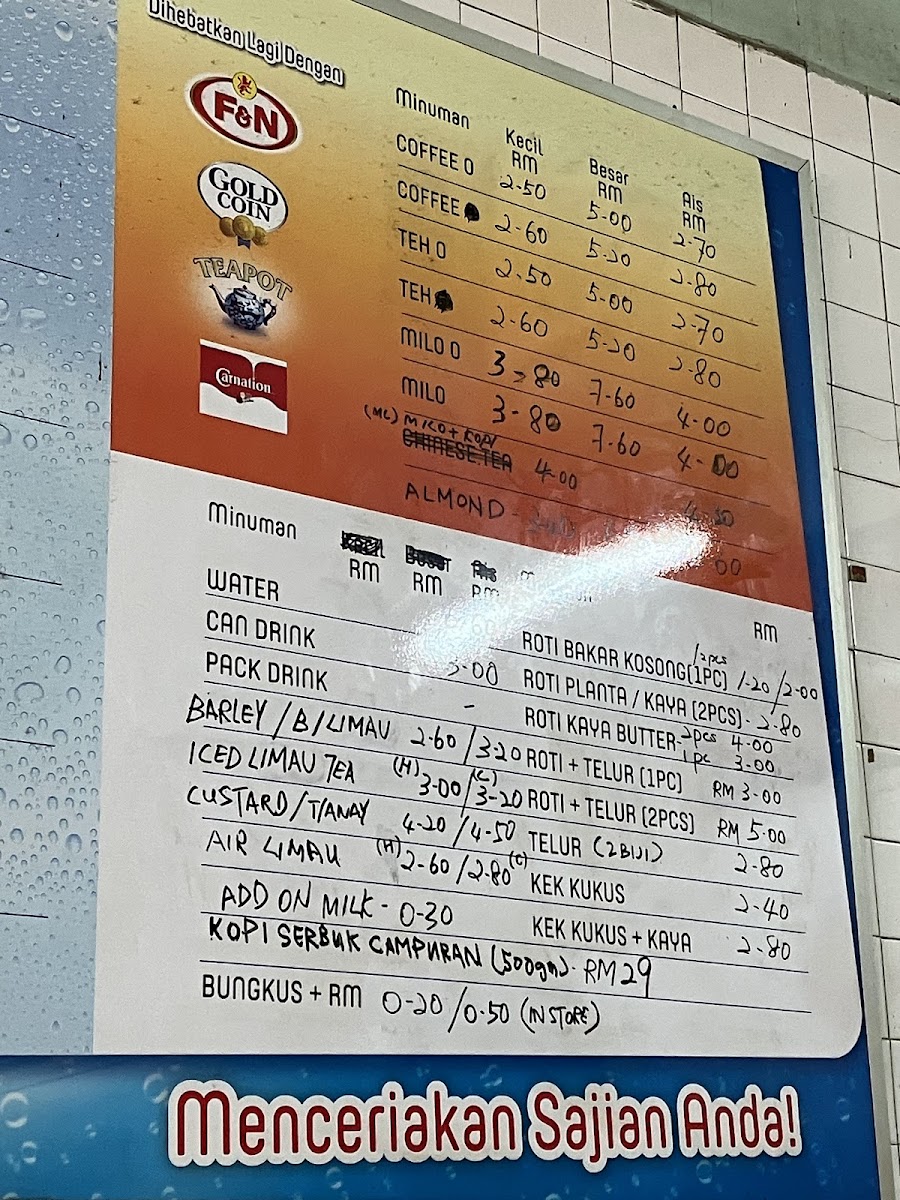 Dihebatkan Lagi Dengan
F&N
GOLD COIN
TEAPOT
Carnation
Minuman Kecil RM Besar RM Ais RM
COFFEE O 2-50 5-00 2-70
COFFEE 2-60 5-20 2-80
TEH O 2-50 5-00 2-70
TEH 2-60 5-20 2-80
MILO O 3-80 7-60 4-00
MILO 3-80 7-60 4-00
(MC) MILO + KOPI
CHINESE TEA 4-00
ALMOND -
Minuman RM RM RM
RM
WATER
CAN DRINK 3-00
PACK DRINK -
BARLEY / B/LIMAU 2-60 / 3-20
ICED LIMAU TEA (H) 3-00 / (C) 3-20
CUSTARD / T/ANAY 4-20 / 4-50
AIR LIMAU (H) 2-60 / 2-80 (C)
ADD ON MILK - 0-30
ROTI BAKAR KOSONG (1PC) /2pcs 1-20 / 2-00
ROTI PLANTA / KAYA (2PCS) - 2-80
ROTI KAYA BUTTER - 2pcs 4-00
1pc 3-00
ROTI + TELUR (1PC) RM 3-00
ROTI + TELUR (2PCS) RM 5-00
TELUR (2 BIJI) 2-80
KEK KUKUS 2-40
KEK KUKUS + KAYA 2-80
KOPI SERBUK CAMPURAN (500gm) - RM 29
BUNGKUS + RM 0-20 / 0.50 (IN STORE)
Menceriakan Sajian Anda!